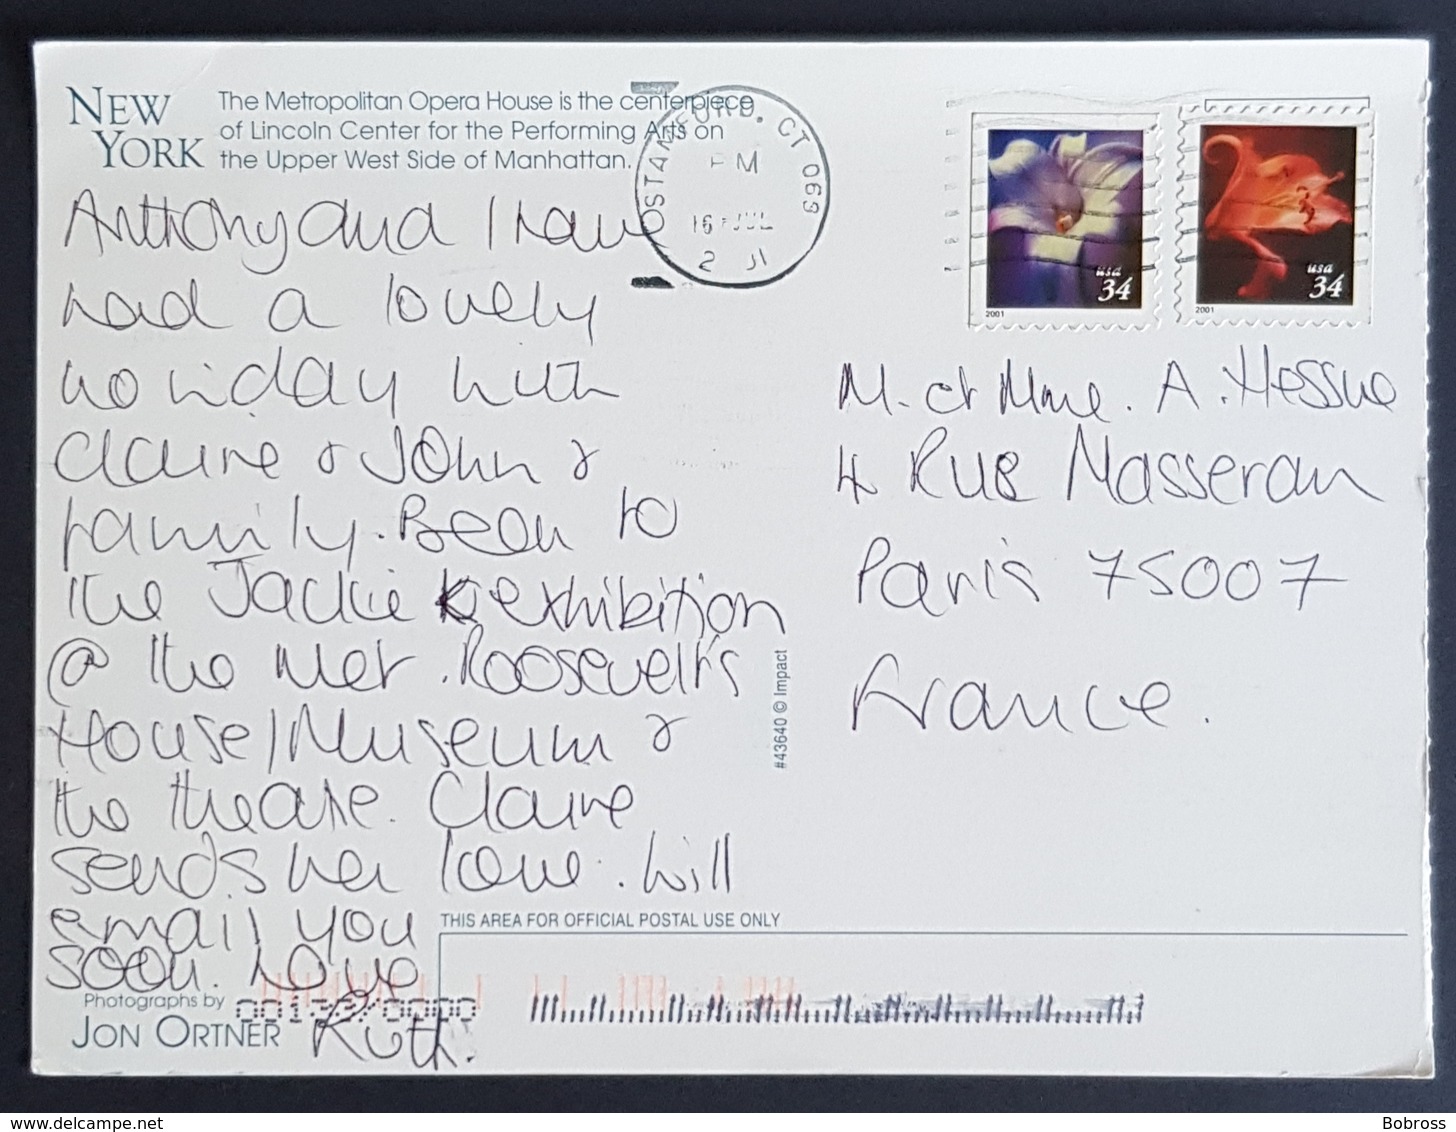 NEW YORK
The Metropolitan Opera House is the centerpiece
of Lincoln Center for the Performing Arts on
the Upper West Side of Manhattan.
STAMFORD, CT 069
PM
16 JUL
usa
34
2001
usa
34
2001
Anthony and I have
had a lovely
holiday with
Claire & John &
family. Been to
the Jackie K exhibition
@ the Met. Roosevelt's
House/Museum &
the theatre. Claire
sends her love. Will
email you
soon. Love
Ruth.
M. et Mme. A. Hessue
4 Rue Masseran
Paris 75007
France.
#43640 © Impact
THIS AREA FOR OFFICIAL POSTAL USE ONLY
Photographs by
JON ORTNER
www.delcampe.net
Bobross